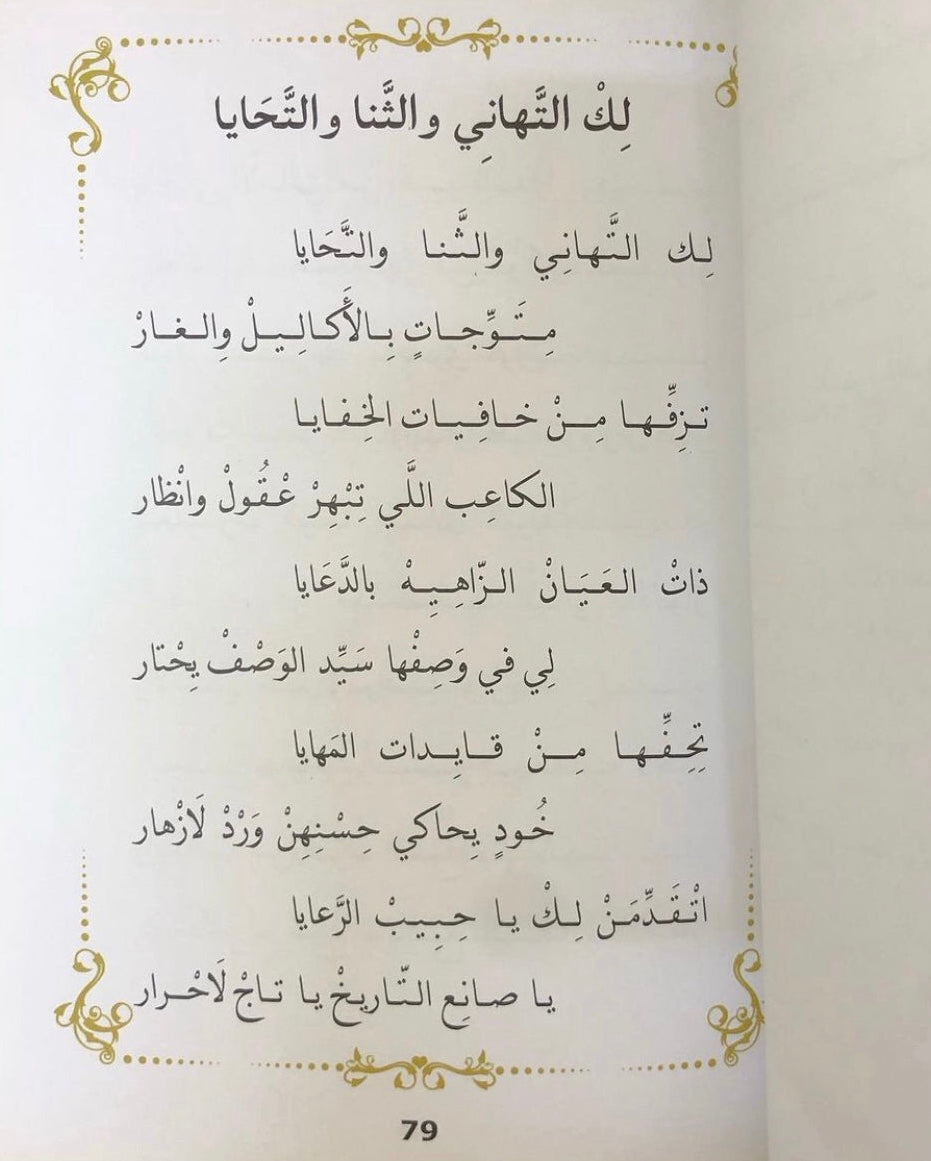 لِكْ التَّهانِي والثَّنا والتَّحَايا
لِـك التَّـهانِـي والثَّـنـا والتَّحَايا
مِـتَـوِّجـاتٍ بِـالأَكـالِـيـلْ وِالـغـارْ
تـزِفِّـهـا مِـنْ خـافِـيـات الخِـفـايـا
الكاعِب اللَّي تِبْهِرْ عْـقُولْ وانْظار
ذاتْ العَـيَـانْ الـزّاهِـيِـهْ بالدَّعَايا
لِي في وَصِفْها سَيِّد الوَصْفْ يِحْتار
تِحِـفِّـهـا مِـنْ قـايِـدات المَهايا
خُـودٍ يِحاكي حِسْنِهِنْ وَرْدْ لَازْهار
اتْـقَـدِّمَـنْ لِـكْ يـا حِـبِـيـبْ الرَّعايا
يـا صـانِـع التّـاريـخْ يـا تـاجْ لَاحْـرار
79